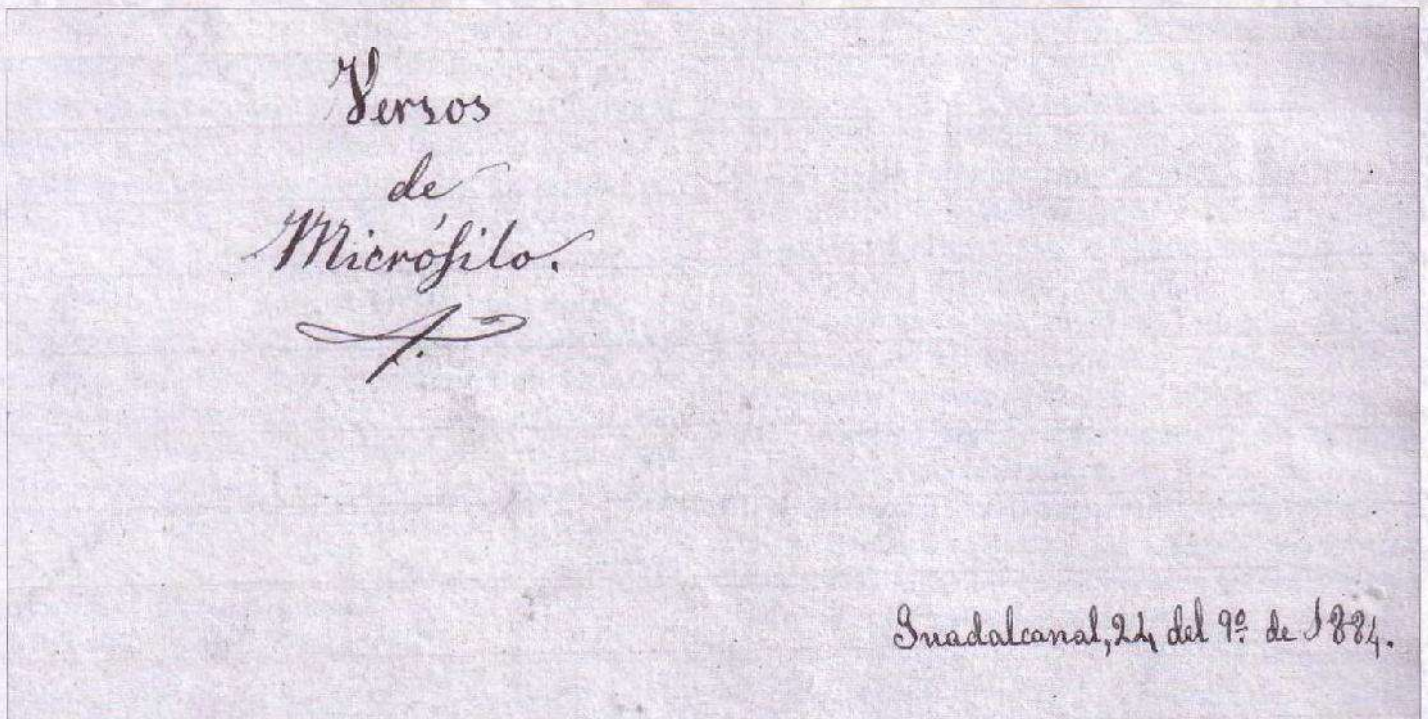 Versos
de
Micrófilo.
Guadalcanal, 24 del 9º de 1884.